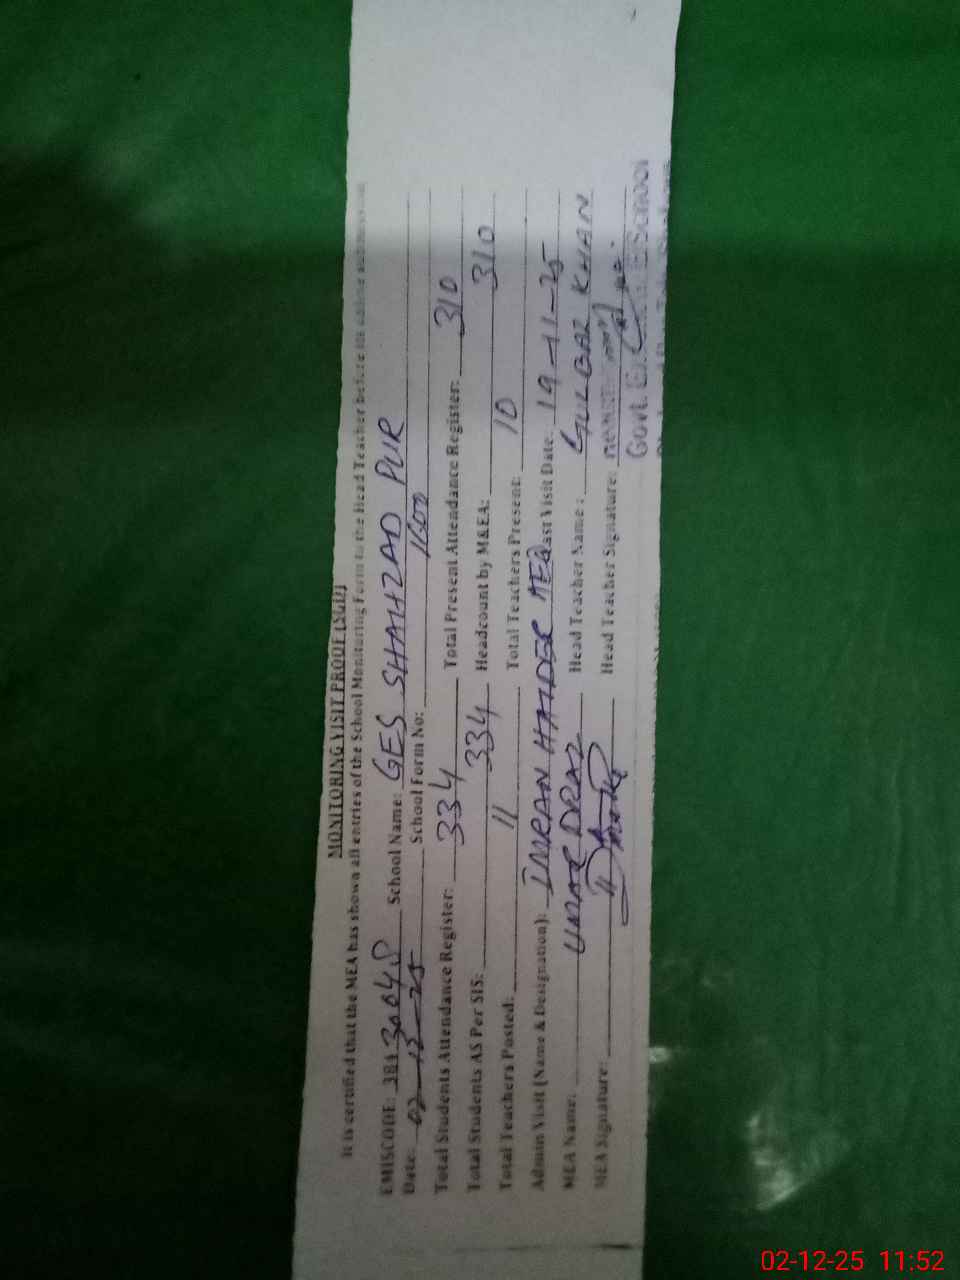 MONITORING VISIT PROOF (SGD)
It is certified that the MEA has shown all entries of the School Monitoring Form to the Head Teacher before its online submission
EMISCODE: 384 30048 School Name: GES SHAHZAD PUR
Date: 02-12-25 School Form No: 1600
Total Students Attendance Register: 334 Total Present Attendance Register: 310
Total Students AS Per SIS: 334 Headcount by M&EA: 310
Total Teachers Posted: 11 Total Teachers Present: 10
Admin Visit (Name & Designation): IMRAN HAIDER AEO Last Visit Date: 19-11-25
MEA Name: UMAR DRAZ Head Teacher Name: GULBAZ KHAN
MEA Signature: Head Teacher Signature:
Govt. E. School
02-12-25 11:52